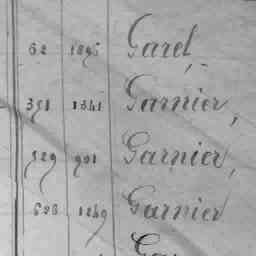 62 1895 Garel,
351 1341 Garnier,
529 901 Garnier,
636 1249 Garnier